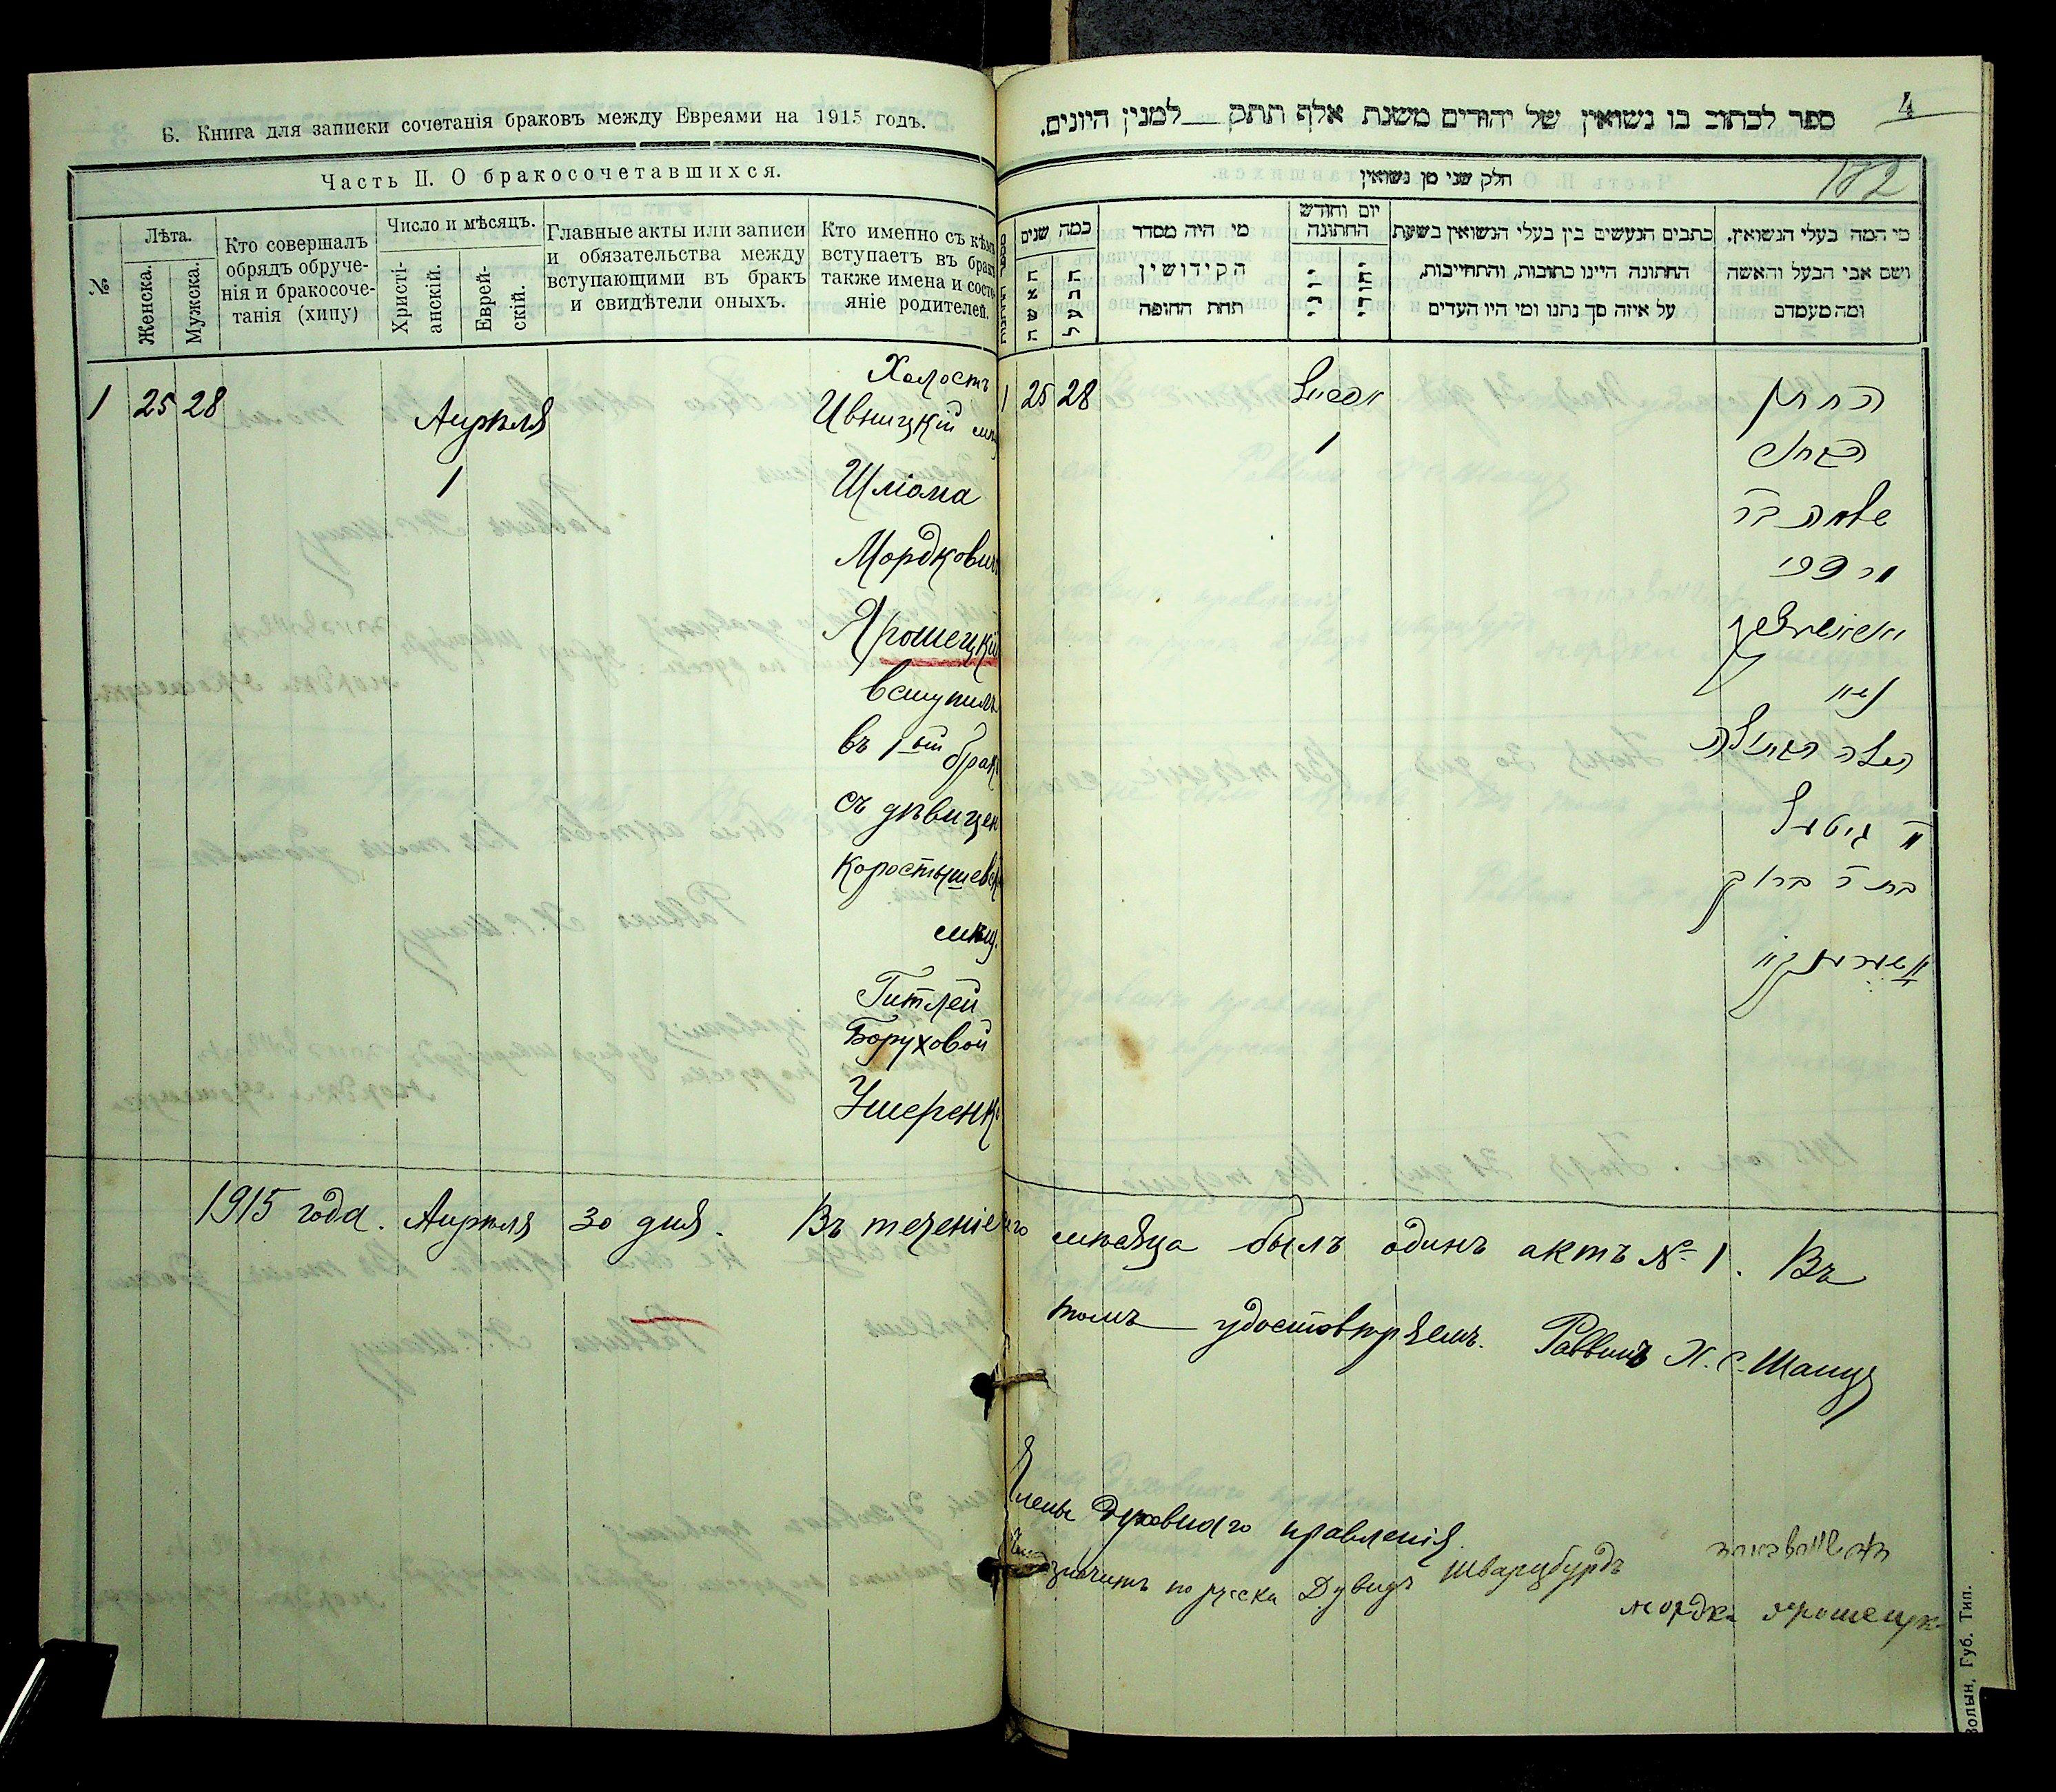 6. Книга для записки сочетанія браковъ между Евреями на 1915 годъ.
Часть II. О бракосочетавшихся.
№
Лѣта.
Женска.
Мужска.
Кто совершалъ
обрядъ обруче-
нія и бракосоче-
танія (хипу)
Число и мѣсяцъ.
Христі-
анскій.
Еврей-
скій.
Главные акты или записи
и обязательства между
вступающими въ бракъ
и свидѣтели оныхъ.
Кто именно съ кѣмъ
вступаетъ въ бракъ
также имена и состо-
яніе родителей.
1 25 28
Апрѣля
1
Холостъ
Ивницкій мѣщ
Шліома
Мордковичъ
Ярошецкій
вступилъ
въ 1ый бракъ
съ дѣвицей
Коростышевск
мѣщ.
Гитлей
Боруховой
Ушеренк
4
182
ספר לכתוב בו נשואין של יהודים משנת אלף תתק למנין היונים.
חלק שני מן נשואין
מספר החתונות
כמה שנים
האשה
הבעל
מי היה מסדר
הקידושין
תחת החופה
יום וחודש
החתונה
יוני
יהודי
כתבים הנעשים בין בעלי הנשואין בשעת
החתונה היינו כתובות, והתחייבות,
על איזה סך נתנו ומי היו העדים
מי המה בעלי הנשואין,
ושם אבי הבעל והאשה
ומה מעמדם
1 25 28
אפריל
1
החתן
הבחור
שלמה בר
מרדכי
יאראשעצקי
נשא
הבתולה
גיטל
בת ר ברוך
אושערענקא
1915 года. Апрѣля 30 дня. Въ теченіе его мѣсяца былъ одинъ актъ № 1. Въ
томъ удостовѣряемъ. Раввинъ Х. С. Шапу
Члены Духовнаго правленія.
значитъ по русски Дувидъ Шварцбурдъ
Мордко Ярошецк
Волын. Губ. Тип.